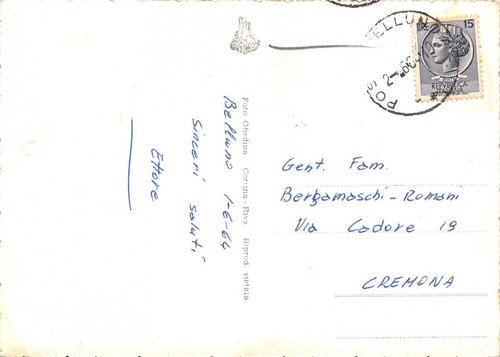 Belluno 1-6-64
Sinceri saluti
Ettore
Foto Ghedina Cortina-Riva Riprod. vietata
15
2-6-64
Gent. Fam.
Bergamaschi-Romani
Via Cadore 19
CREMONA